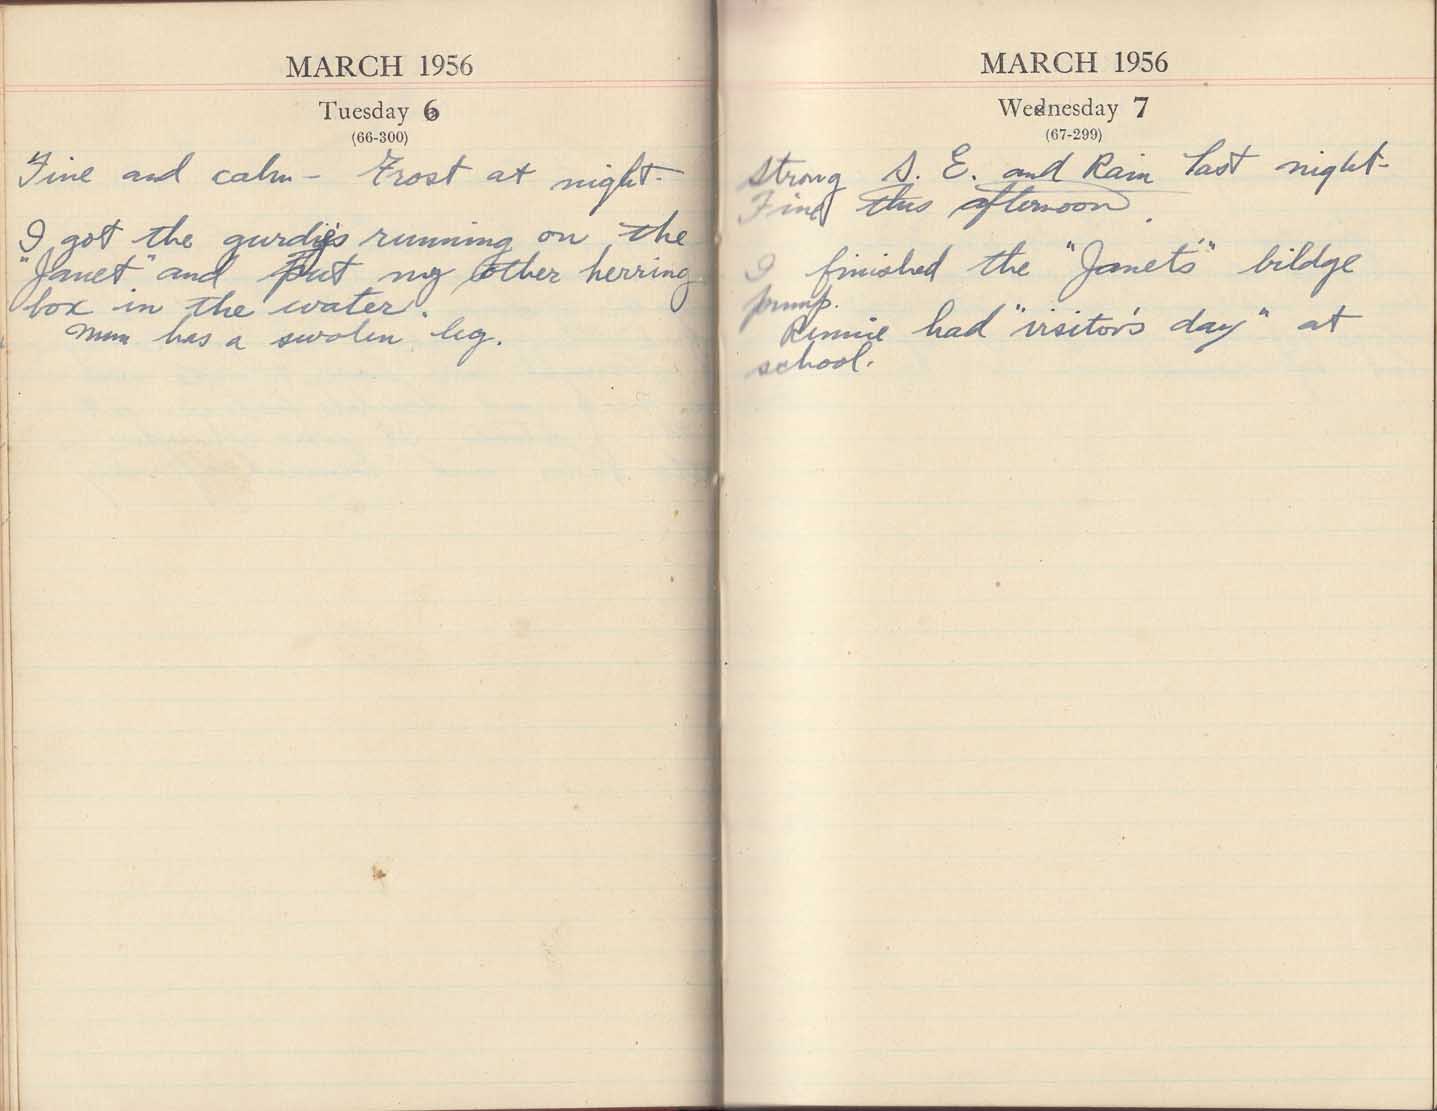 MARCH 1956
Tuesday 6
(66-300)
Fine and calm - Frost at night-
I got the gurdies running on the
"Janet" and put my other herring
box in the water.
Mum has a swolen leg.
MARCH 1956
Wednesday 7
(67-299)
Strong S. E. and Rain last night-
Fine this afternoon.
I finished the "Janet's" bildge
pump.
had "visitor's day" at
school.